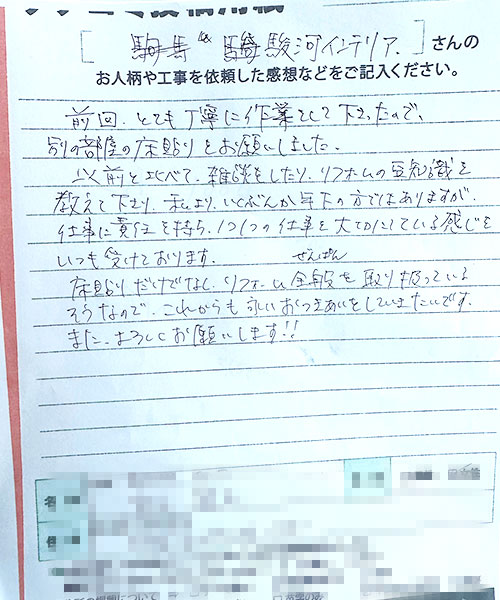 [ 駿河インテリア. ] さんの
お人柄や工事を依頼した感想などをご記入ください。
前回、とても丁寧に作業をして下さったので、
別の部屋の床貼りをお願いしました。
以前と比べて、雑談をしたり、リフォームの豆知識を
教えて下さり、私より、いくぶんか年下の方ではありますが、
仕事に責任を持ち、1つ1つの仕事を大切にしている感じを
いつも受けております。
ぜんぱん
床貼りだけでなく、リフォーム全般を取り扱っている
そうなので、これからも永いおつきあいをしていきたいです。
また、よろしくお願いします!!